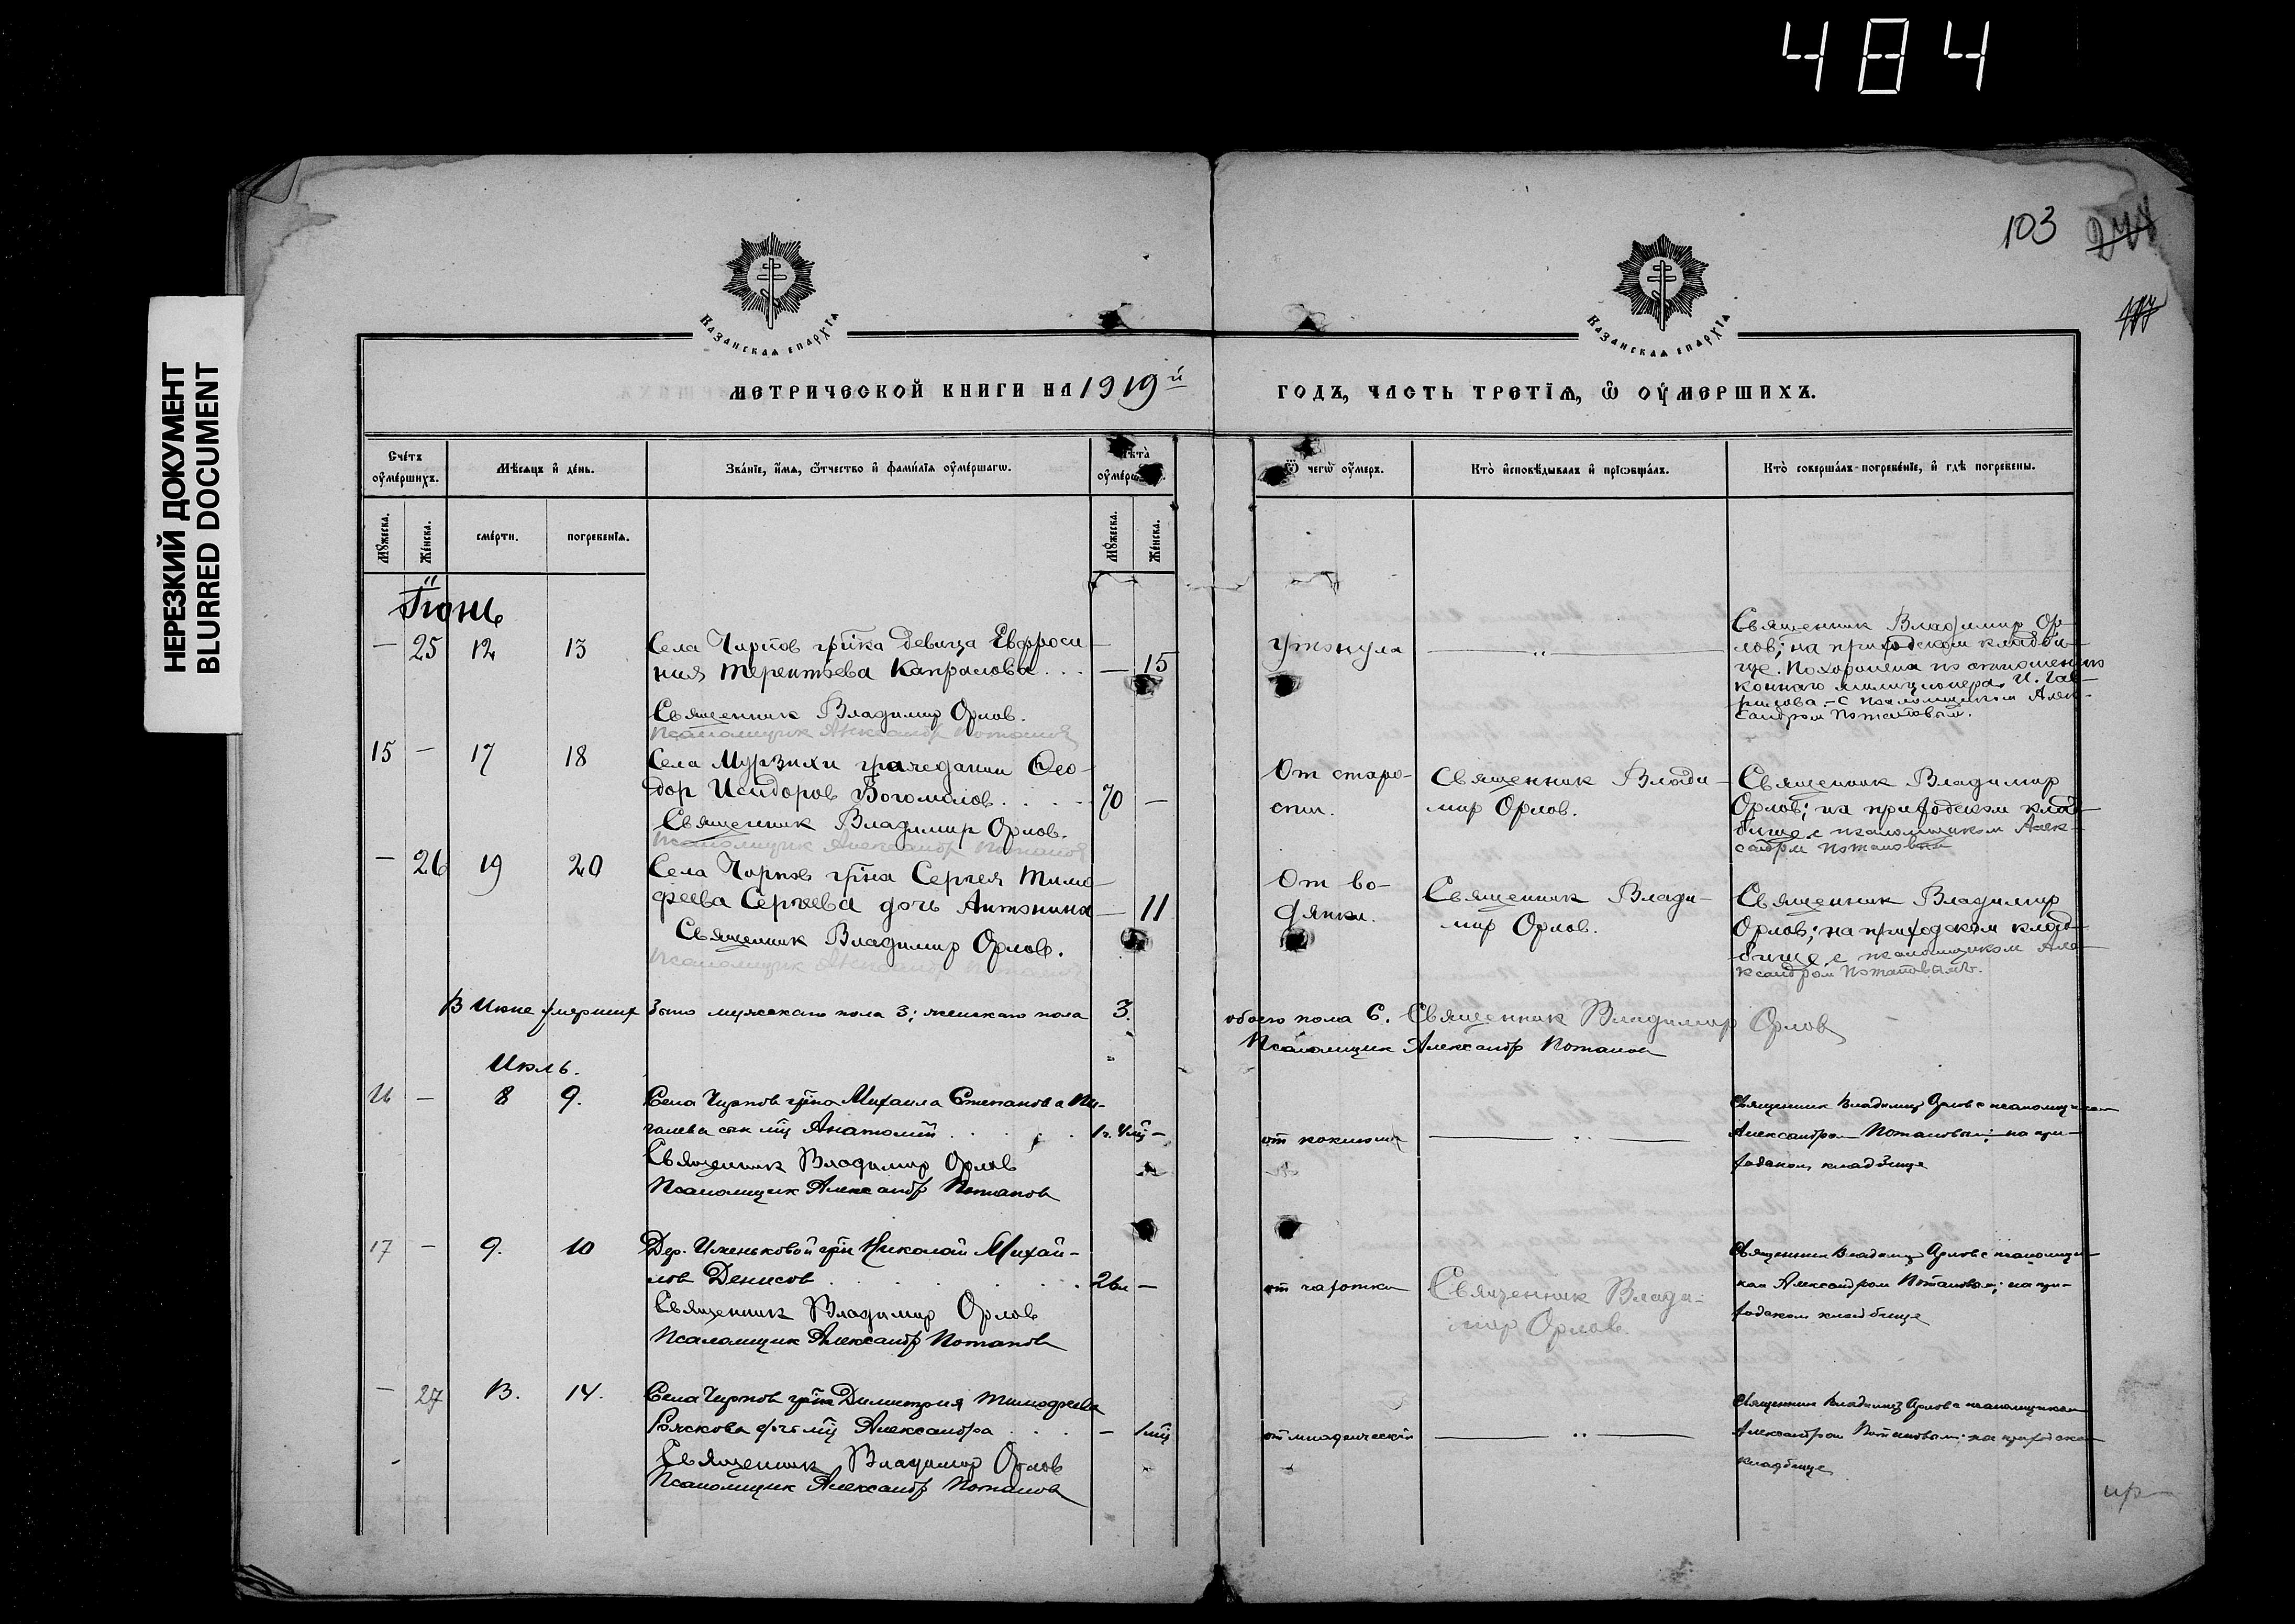 484
НЕРЕЗКИЙ ДОКУМЕНТ
BLURRED DOCUMENT
103
КАЗАНСКАѦ ЕПАРХЇА
КАЗАНСКАѦ ЕПАРХЇА
МЕТРИЧЕСКОЙ КНИГИ НА 1919й ГОДЪ, ЧАСТЬ ТРЕТЇѦ, Ѿ ОУМЕРШИХЪ.
Счétъ оумéршихъ.
Мѣсяцъ и дéнь.
Звáнїе, и́мѧ, ѻ́тчество и фами́лїѧ оумéршагѡ.
Лѣтà оумéрш
Ѿ чегѡ̀ оу́меръ.
Ктò и҆сповѣ́дывалъ и҆ прїѡбщáлъ.
Ктò совершáлъ погребéнїе, и҆ гдѣ̀ погребены.
Мꙋжеска.
Жéнска.
смéрти.
погребенїѧ.
Мꙋжеска.
Жéнска.
Іюнь
— 25 12 13 Села Чирпов гр-ка девица Евфроси
ния Терентьева Капралова . . . — 15
Священник Владимир Орлов.
Псаломщик Александр Потапов
Утонула
Священник Владимир Ор-
лов; на приходском кладби-
ще. Похоронена по отношению
коннаго милиционера И. Гав-
рилова. – С псаломщиком Алек-
сандром Потаповым.
15 — 17 18 Села Мурзихи гражданин Фео-
дор Исидоров Богомолов . . . . 70 —
Священник Владимир Орлов.
Псаломщик Александр Потапов
От старо-
сти.
Священник Влади-
мир Орлов.
Священник Владимир
Орлов; на приходском клад-
бище с псаломщиком Алек-
сандром Потаповым
— 26 19 20 Села Чирпов гр-на Сергея Тимо-
феева Сергеева дочь Антонина — 11
Священник Владимир Орлов.
Псаломщик Александр Потапов
От во-
дянки.
Священник Влади-
мир Орлов.
Священник Владимир
Орлов; на приходском клад-
бище с псаломщиком Але-
ксандром Потаповымъ.
В Июне умерших было мужскаго пола 3; женскаго пола 3.
обоего пола 6. Священник Владимир Орлов
Псаломщик Александр Потапов
Июль.
16 — 8 9. Села Чирпов гр-на Михаила Степанова Пи-
галева сын мц Анатолий . . . . 1г. 4мц —
Священник Владимир Орлов
Псаломщик Александр Потапов
от коклюша
Священник Владимир Орлов с псаломщиком
Александром Потаповым; на при-
ходском кладбище
17 — 9. 10 Дер. Именьковой гр-н Николай Михай-
лов Денисов . . . . . . 26л —
Священник Владимир Орлов
Псаломщик Александр Потапов
от чахотки
Священник Влади-
мир Орлов.
Священник Владимир Орлов с псаломщи-
ком Александром Потаповым; на при-
ходском кладбище
— 27 13. 14. Села Чирпов гр-на Димитрия Тимофеева
дочь мц Александра . . . — 1мц
Священник Владимир Орлов
Псаломщик Александр Потапов
от младенческой
Священник Владимир Орлов с псаломщиком
Александром Потаповым; на приходском
кладбище